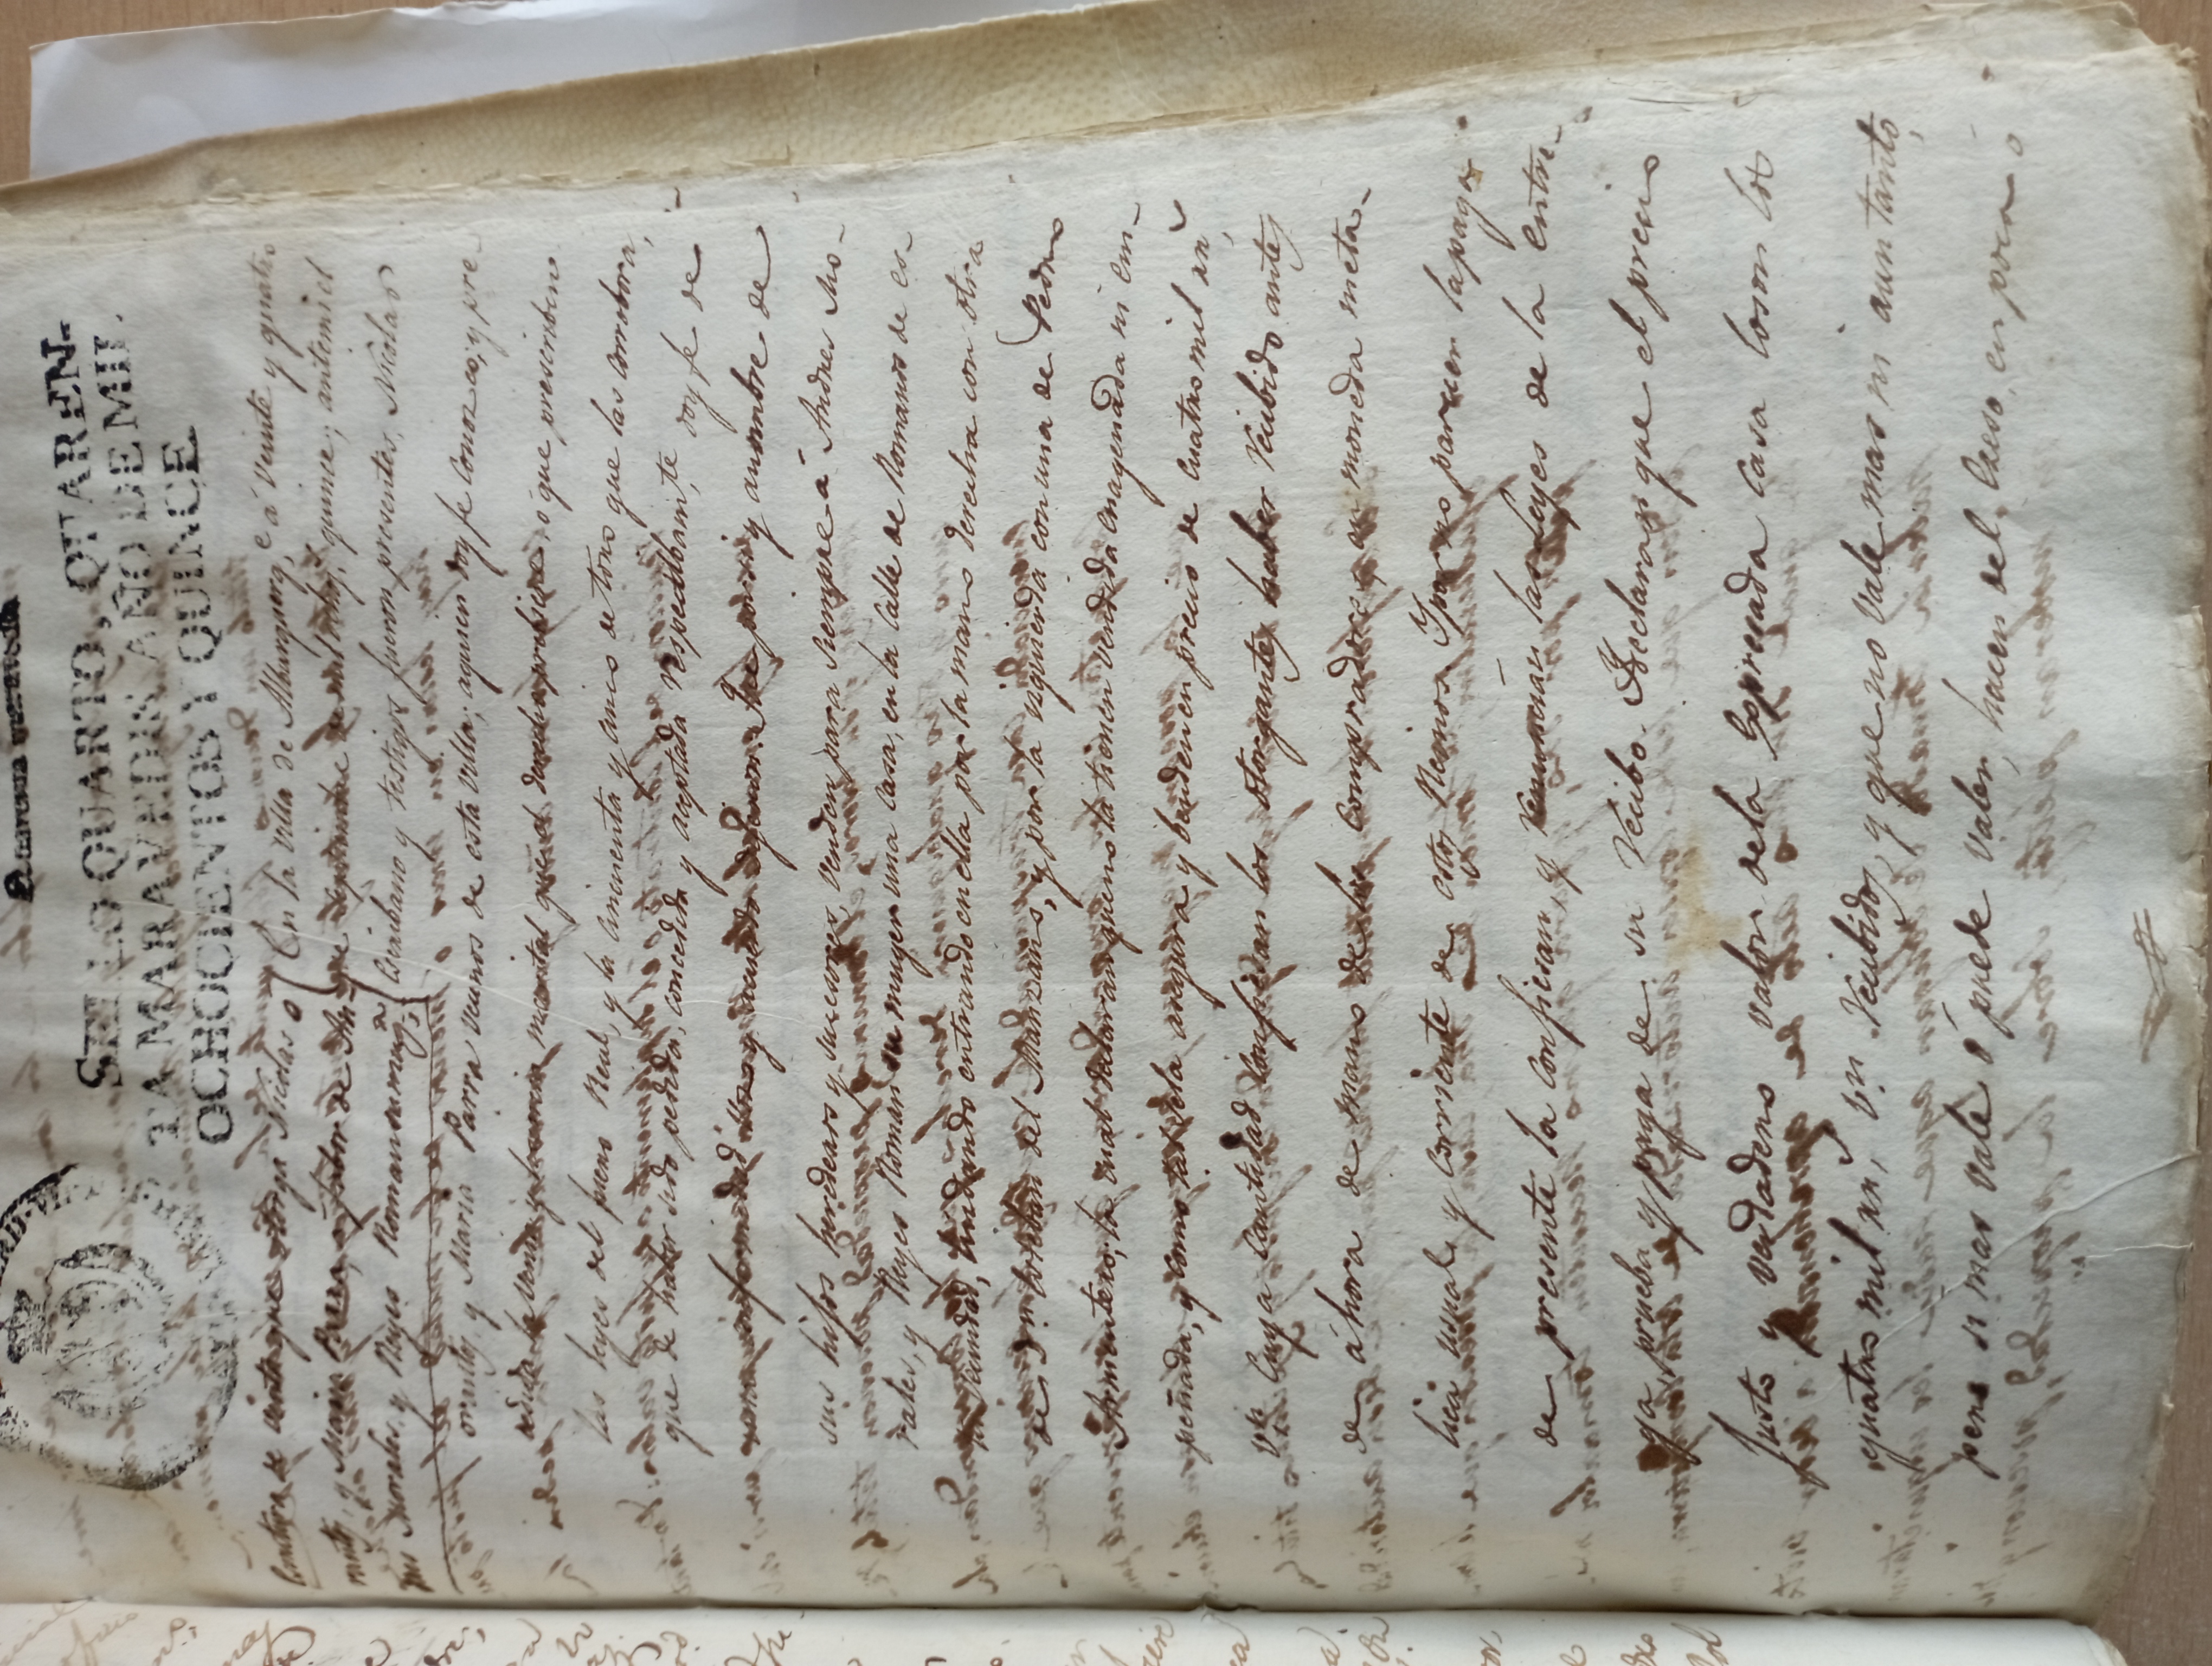 Quarenta maravedis
SELLO QUARTO, QUAREN-
TA MARAVEDIS, AÑO DE MIL
OCHOCIENTOS Y QUINCE
Escritura de venta que otorga Nicolas o
rantes, y Maria Parra, a fabor de An-
dres Morales, y Reyes Roman su mug.ª
En la Villa de Alburquerq.e á veinte y quatro
de Septiembre de mil ochos. quince; ante mi el
Escribano y testigos fueron presentes, Nicolas
orantes, y Maria Parra vecinos de esta villa; aquien doy fe conozco; y pre-
cedida la venia y licencia marital que el derecho prebiene, ó que prescriben
las leyes del fuero Real, y la cincuenta y cinco de toro que las corrobora,
que de haber sido pedida, concedida y aceptada respectibam.te, doy fe de
conformidad y acuerdo dijeron: Que por si y anombre de
sus hijos herederos y sucesores, venden para siempre á Andres Mo-
rales, y Reyes Roman su muger una casa, en la Calle de Romanos de es-
ta vecindad, lindando entrando en ella por la mano derecha con otra
de D.n Esteban del Manzano, y por la izquierda con una de Pedro
Armentero; la cual declaran que no la tienen vendida enagenada ni em-
peñada, y como tal se la asegura y benden en precio de cuatro mil rr.s
v.n cuya cantidad confiesan los otorgantes haber recibido antes
de áhora de mano de los compradores, en moneda meta-
lica usual y corriente de estos Reinos. Y por no parecer la paga
de presente la confiesan, y renuncian las Leyes de la entre-
ga, prueba y paga de su recibo. Y declaran que el precio
justo y verdadero valor de la Expresada casa loson los
quatro mil rr.s v.n recibidos, y que no vale mas ni aun tanto,
pero si mas vale ó puede valer, hacen del Exeso en poca ó